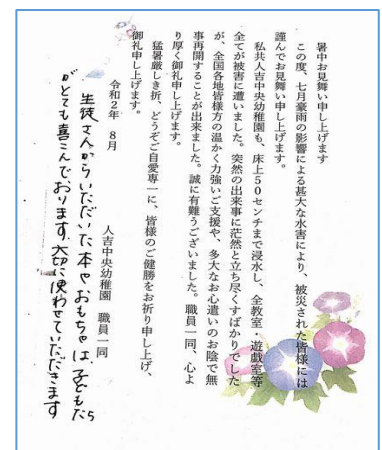 暑中お見舞い申し上げます
この度、七月豪雨の影響による甚大な水害により、被災された皆様には
謹んでお見舞い申し上げます。
私共人吉中央幼稚園も、床上50センチまで浸水し、全教室・遊戯室等
全てが被害に遭いました。突然の出来事に茫然と立ち尽くすばかりでした
が、全国各地皆様方の温かく力強いご支援や、多大なお心遣いのお陰で無
事再開することが出来ました。誠に有難うございました。職員一同、心よ
り厚く御礼申し上げます。
猛暑厳しき折、どうぞご自愛専一に、皆様のご健勝をお祈り申し上げ、
御礼申し上げます。
令和2年 8月
人吉中央幼稚園 職員一同
生徒さんからいただいた本や、おもちゃは、子どもたち
がとても喜こんでおります。大切に使わせていただきます